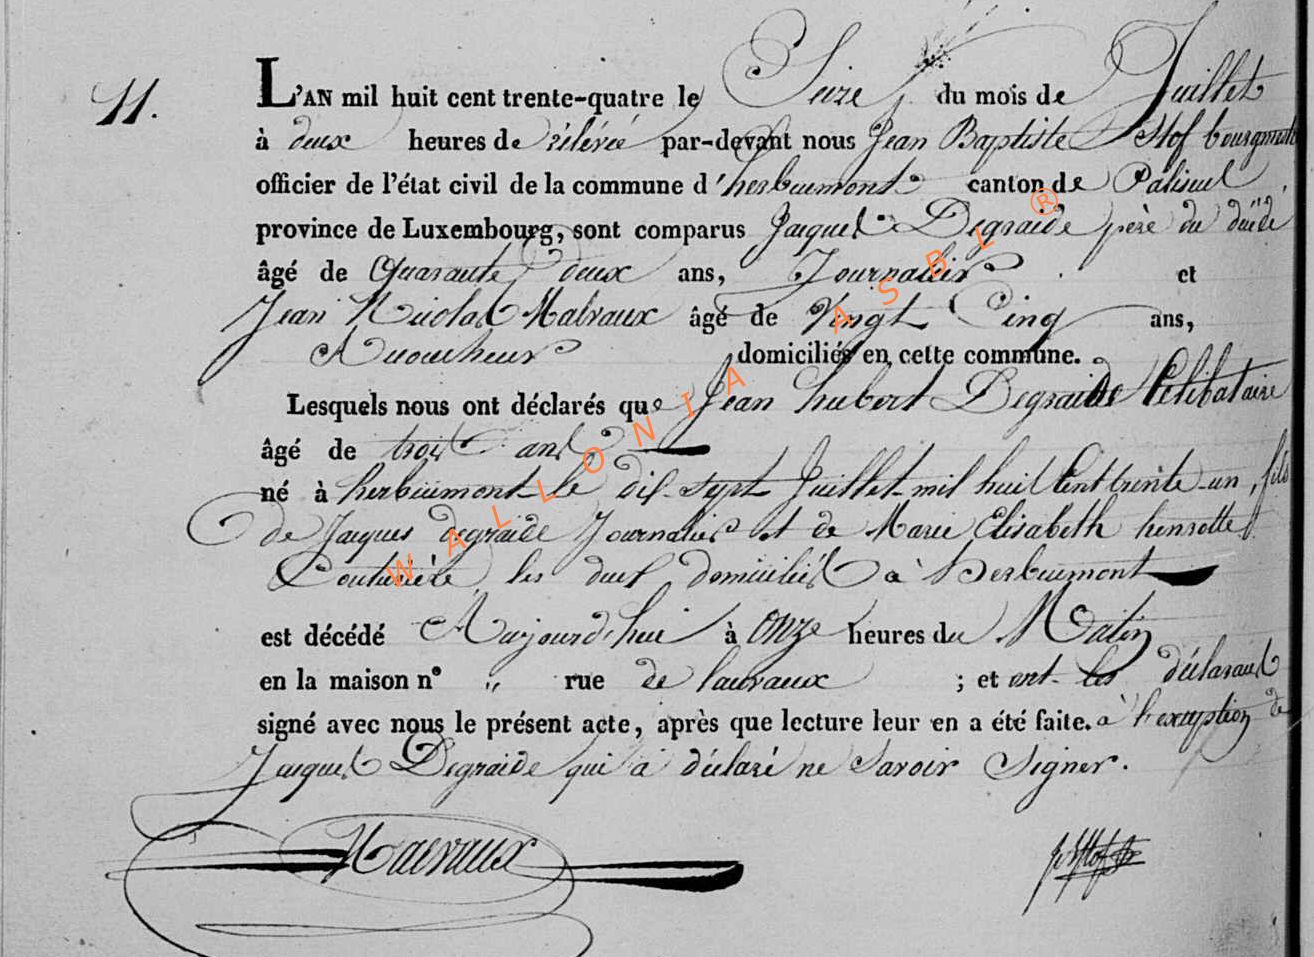 11.
L'AN mil huit cent trente-quatre le Seize du mois de Juillet
à deux heures de rélévée par-devant nous Jean Baptiste Stof bourgmestre
officier de l'état civil de la commune d'herbeumont canton de Paliseul
province de Luxembourg, sont comparus Jacques Degraide père du
âgé de Quarante deux ans, Journalier et
Jean Nicolas Malvaux âgé de Vingt Cinq ans,
domiciliés en cette commune.
Lesquels nous ont déclarés que Jean hubert Degraide Célibataire
âgé de trois ans
né à herbeumont le dix-sept Juillet mil huit Cent trente-un, fils
de Jacques degraide Journalier et de Marie Elisabeth henrotte
Couturière, les deux domiciliés à herbeumont
est décédé Aujourd'hui à Onze heures du Matin
en la maison nº " rue de lauvaux ; et ont les déclarants
signé avec nous le présent acte, après que lecture leur en a été faite. à l'exception de
Jacques Degraide qui a déclaré ne Savoir Signer.
Malvaux
WALLONIA ASBL ®